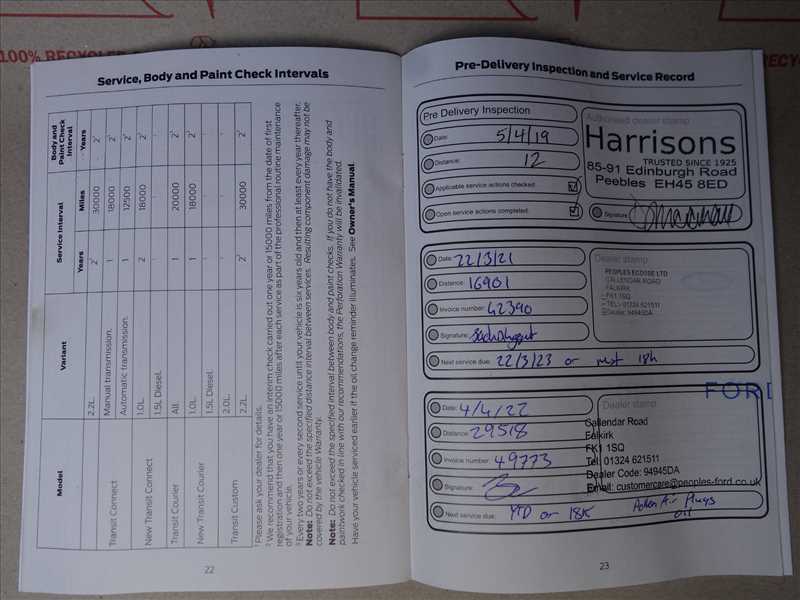 100% RECYCLED
RECYC
Service, Body and Paint Check Intervals
Model
Variant
Service Interval
Body and Paint Check Interval
Years
Miles
Years
2.2L.
2¹
30000
2¹
Transit Connect
Manual transmission.
1
18000
2¹
Automatic transmission.
1
12500
2¹
New Transit Connect
1.0L.
2
18000
2¹
1.5L Diesel.
Transit Courier
All.
1
20000
2¹
New Transit Courier
1.0L.
1
18000
2¹
1.5L Diesel.
Transit Custom
2.0L.
2.2L.
2²
30000
2¹
¹Please ask your dealer for details.
²We recommend that you have an interim check carried out one year or 15000 miles from the date of first
registration and then one year or 15000 miles after each service as part of the professional routine maintenance
of your vehicle.
³Every two years or every second service until your vehicle is six years old and then at least every year thereafter.
Note: Do not exceed the specified distance interval between services. Resulting component damage may not be
covered by the vehicle Warranty.
Note: Do not exceed the specified interval between body and paint checks. If you do not have the body and
paintwork checked in line with our recommendations, the Perforation Warranty will be invalidated.
Have your vehicle serviced earlier if the oil change reminder illuminates. See Owner's Manual.
22
Pre-Delivery Inspection and Service Record
Pre Delivery Inspection
Date: 5/4/19
Distance: 12
Applicable service actions checked:
Open service actions completed:
Authorised dealer stamp
Harrisons
TRUSTED SINCE 1925
85-91 Edinburgh Road
Peebles EH45 8ED
Signature:
Date: 22/3/21
Distance: 16901
Invoice number: 42390
Signature:
Next service due: 22/3/23 or next 18k
Dealer stamp
PEOPLES ECOSSE LTD
CALLENDAR ROAD
FALKIRK
FK1 1SQ
TEL: 01324 621511
Dealer: 94945DA
FORD
Date: 4/4/22
Distance: 29518
Invoice number: 49773
Signature:
Next service due: YTD or 18K
Dealer stamp
Callendar Road
Falkirk
FK1 1SQ
Tel: 01324 621511
Dealer Code: 94945DA
Email: customercare@peoples-ford.co.uk
Air Plugs
oil
23